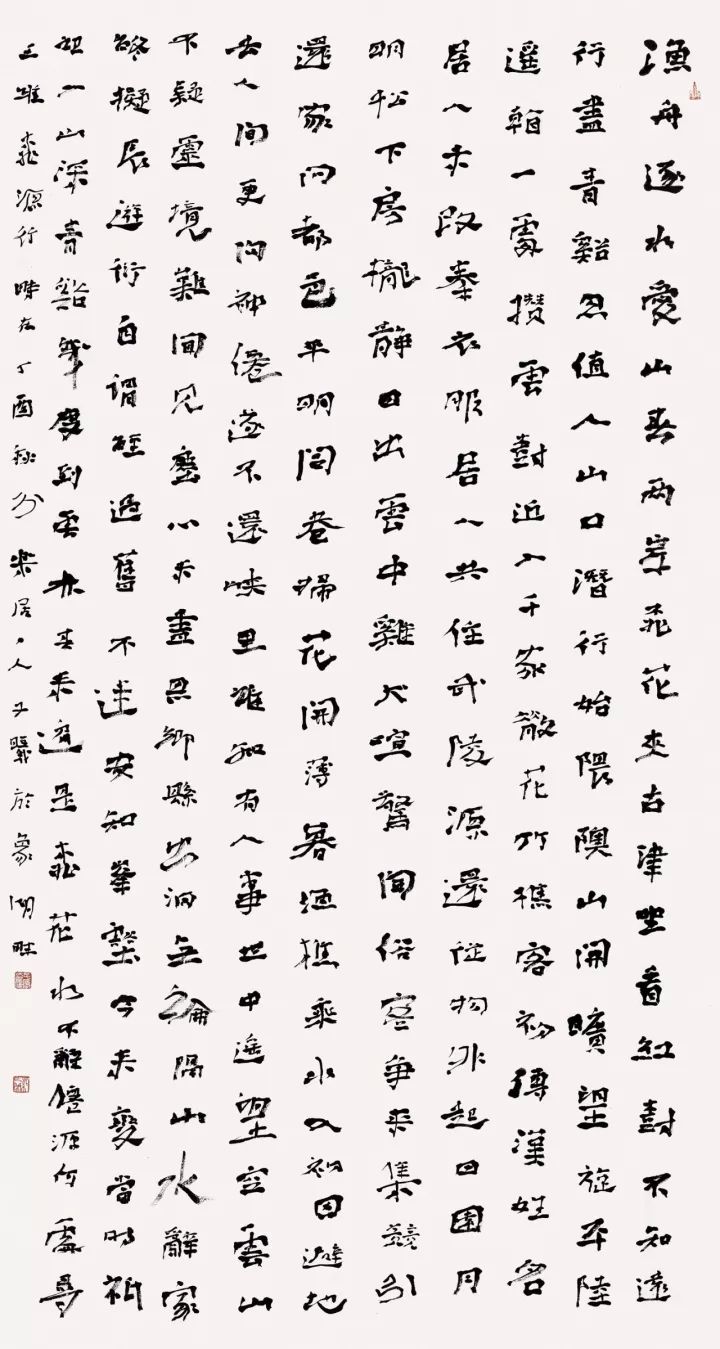 漁舟逐水愛山春兩岸桃花夾古津坐看紅樹不知遠
行盡青谿忽值人山口潛行始隈隩山開曠望旋平陸
遙看一處攢雲樹近入千家散花竹樵客初傳漢姓名
居人未改秦衣服居人共住武陵源還從物外起田園月
明松下房櫳靜日出雲中雞犬喧驚聞俗客爭來集競引
還家問都邑平明閭巷掃花開薄暮漁樵乘水入初因避地
去人間更問神僊遂不還峽里誰知有人事世中遙望空雲山
不疑靈境難聞見塵心未盡思鄉縣出洞無論隔山水辭家
終擬長遊衍自謂經過舊不迷安知峯壑今來變當時衹
記入山深青谿幾度到雲林春來遍是桃花水不辨僊源何處尋
王維桃源行時在丁酉秋分樂居人於象湖畔